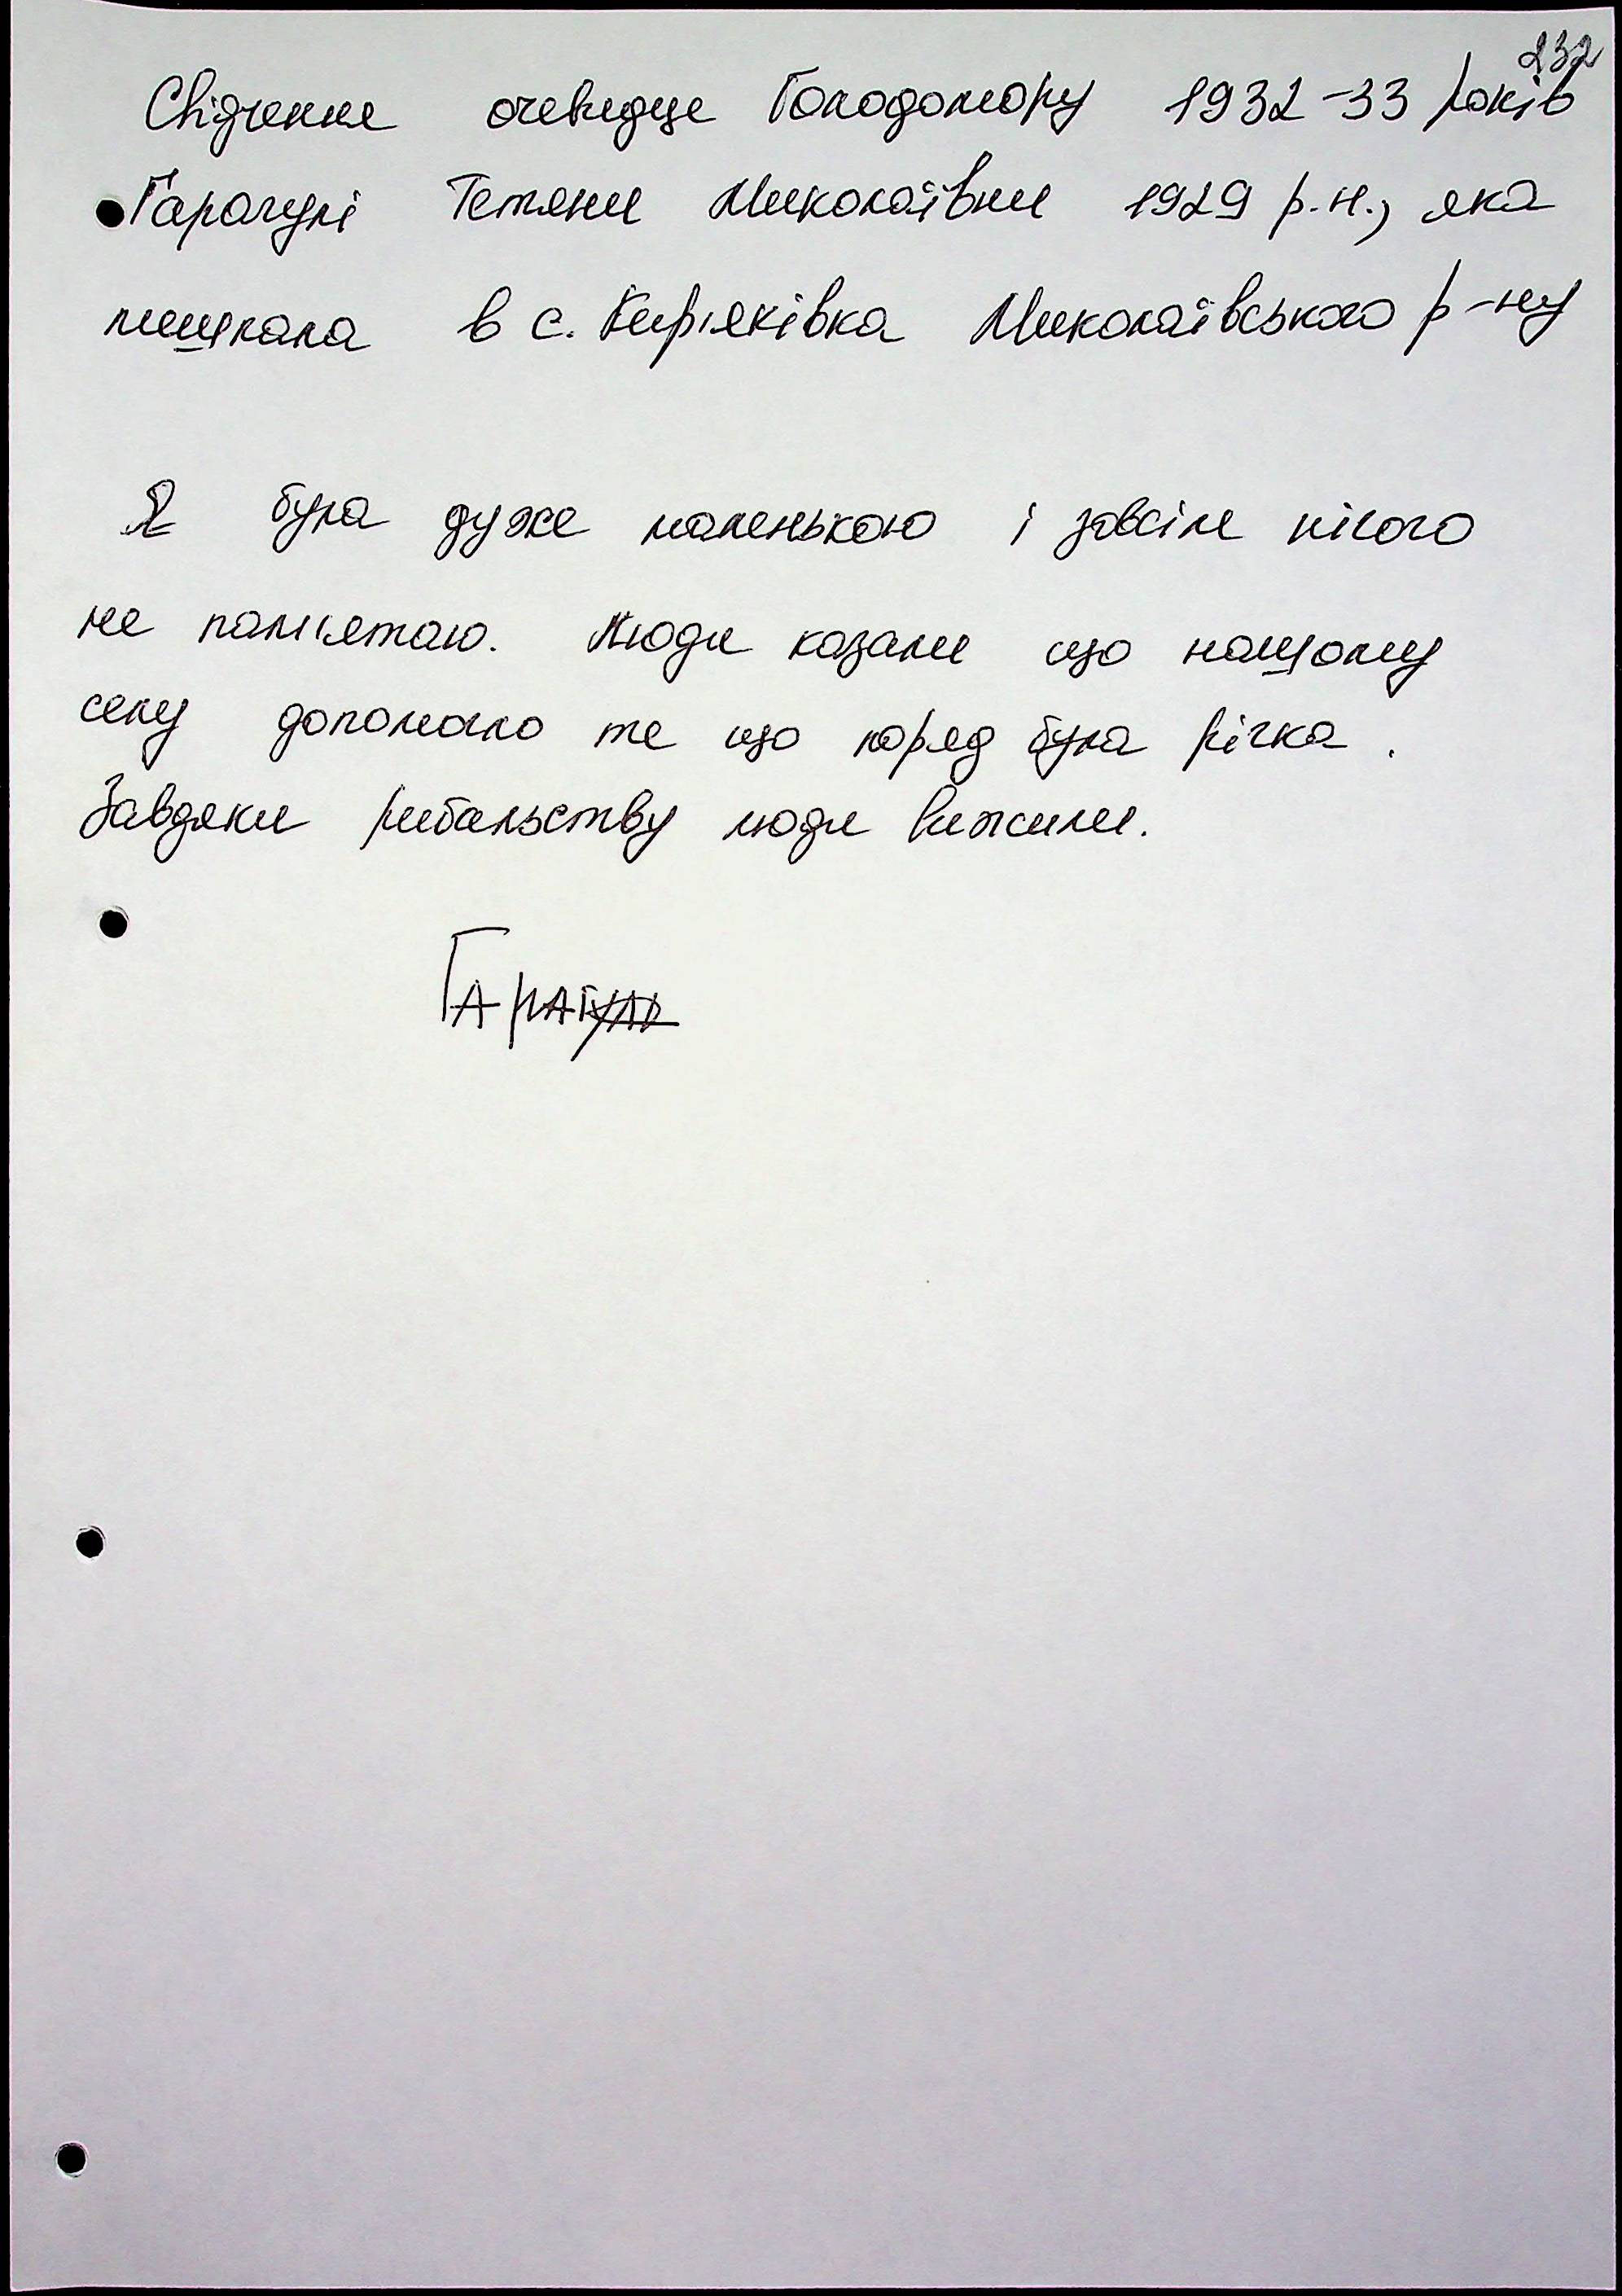 232
Свідчення очевидця Голодомору 1932-33 років
Гарагулі Тетяни Миколаївни 1929 р.н., яка
мешкала в с. Кир'яківка Миколаївського р-ну
Я була дуже маленькою і зовсім нічого
не пам'ятаю. Люди казали що нашому
селу допомогло те що поряд була річка.
Завдяки рибальству люди вижили.
Гарагуль